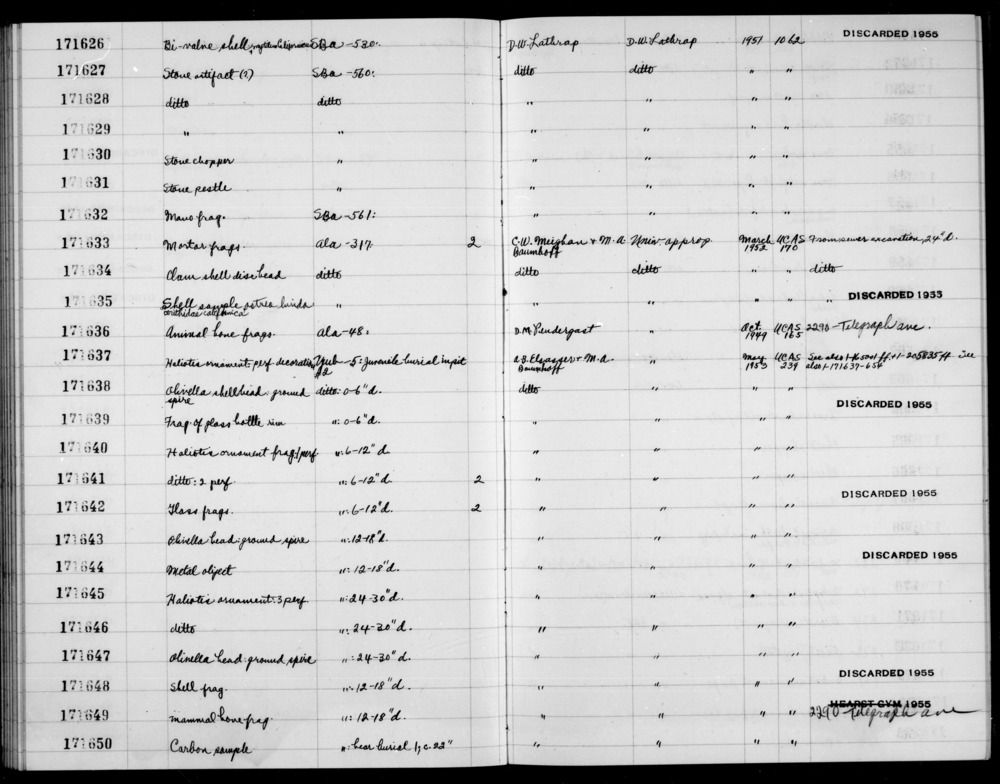 171626 Bi-valve shell, SBa-530: D.W. Lathrap D.W. Lathrap 1951 1062 DISCARDED 1955
171627 Stone artifact (?) SBa-560: ditto ditto " "
171628 ditto ditto " " " "
171629 " " " " " "
171630 Stone chopper " " " " "
171631 Stone pestle " " " " "
171632 Mano frag. SBa-561: " " " "
171633 Mortar frags. Ala-317. 2 C.W. Meighan + M.A. Baumhoff Univ. approp. March 1952 UCAS 170 From sewer excavation, 24" d.
171634 Clam shell disc bead ditto ditto ditto " " ditto
171635 Shell sample ostrea lurida cerithidae californica " " " " " " DISCARDED 1955
171636 Animal bone frags. Ala-48: D.M. Pendergast " Oct. 1949 UCAS 165 2290 - Telegraph ave.
171637 Haliotis ornament, perf. decoration Yub-5: Juvenile burial in pit #2 A.B. Elsasser + M.A. Baumhoff " May 1953 UCAS 239 See also 1-165001 ff. + 1-205835 ff See also 1-171637-654
171638 Olivella shell bead: ground spire ditto: 0-6" d. ditto " " "
171639 Frag. of glass bottle rim ": 0-6" d. " " " " DISCARDED 1955
171640 Haliotis ornament frag, perf ": 6-12" d. " " " "
171641 ditto: 2 perf. ": 6-12" d. 2 " " " "
171642 Glass frags. ": 6-12" d. 2 " " " " DISCARDED 1955
171643 Olivella bead: ground spire ": 12-18" d. " " " "
171644 Metal object ": 12-18" d. " " " " DISCARDED 1955
171645 Haliotis ornament: 3 perf. ": 24-30" d. " " " "
171646 ditto ": 24-30" d. " " " "
171647 Olivella bead: ground spire ": 24-30" d. " " " "
171648 Shell frag. ": 12-18" d. " " " " DISCARDED 1955
171649 mammal bone frag. ": 12-18" d. " " " " HEARST GYM 1955 2290 Telegraph ave
171650 Carbon sample ": near burial 1, c. 22" " " " "